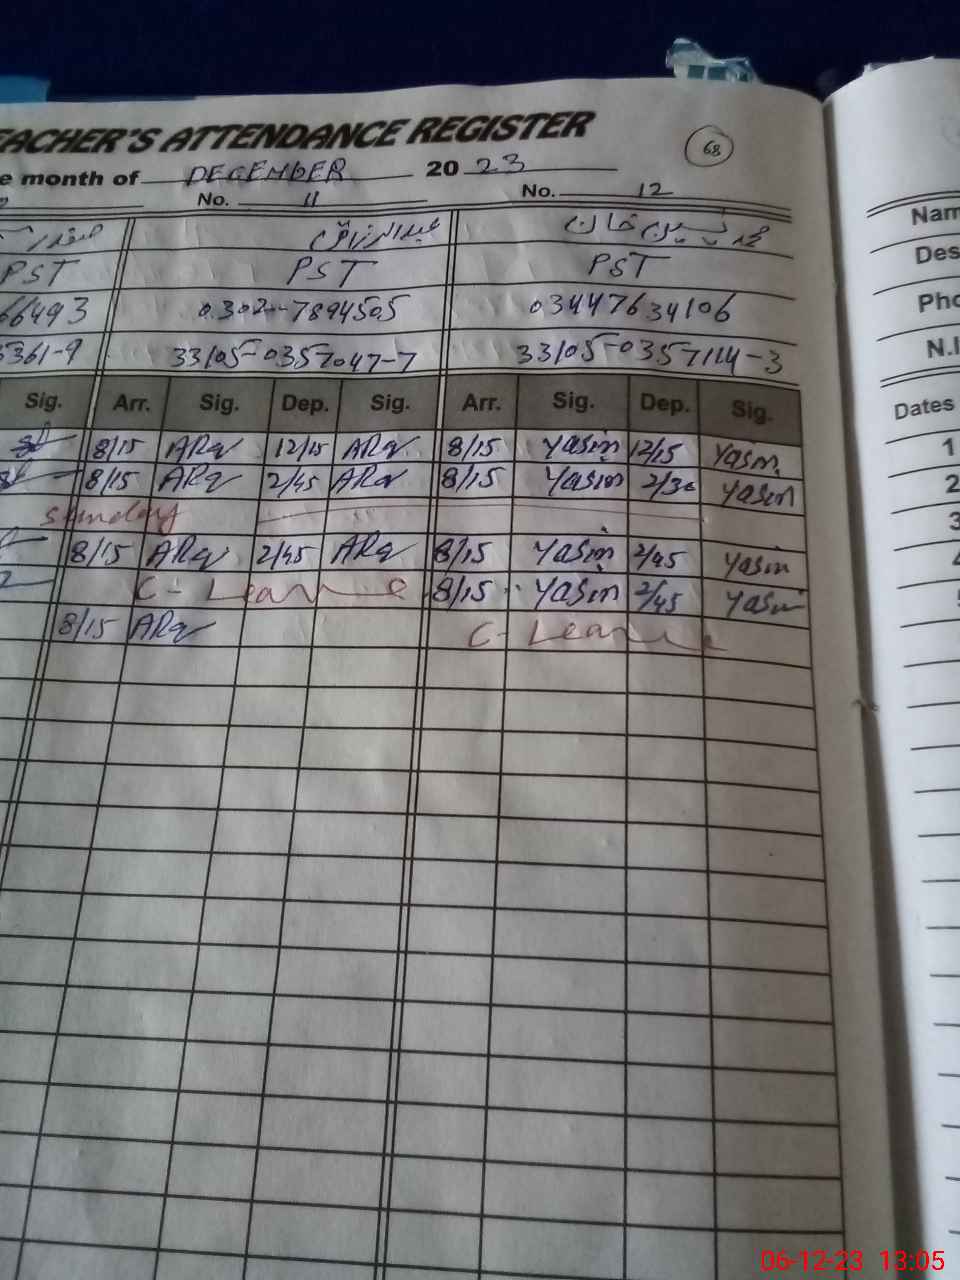 EACHER'S ATTENDANCE REGISTER
68
e month of DECEMBER 20 23
No. 11 No. 12
عبدالرزاق محمد یٰسین خان
PST PST PST
66493 0302-7894505 03447634106
5361-9 33105-0357047-7 33105-0357114-3
Sig. Arr. Sig. Dep. Sig. Arr. Sig. Dep. Sig.
8/15 ARq 12/15 ARq 8/15 Yasin 12/15 Yasin
8/15 ARq 2/45 ARq 8/15 Yasin 2/30 Yasin
Sunday
8/15 ARq 2/45 ARq 8/15 Yasin 2/45 Yasin
C- Leave 8/15 Yasin 2/45 Yasin
8/15 ARq C- Leave
Nam
Des
Pho
N.I
Dates
1
2
3
06-12-23 13:05